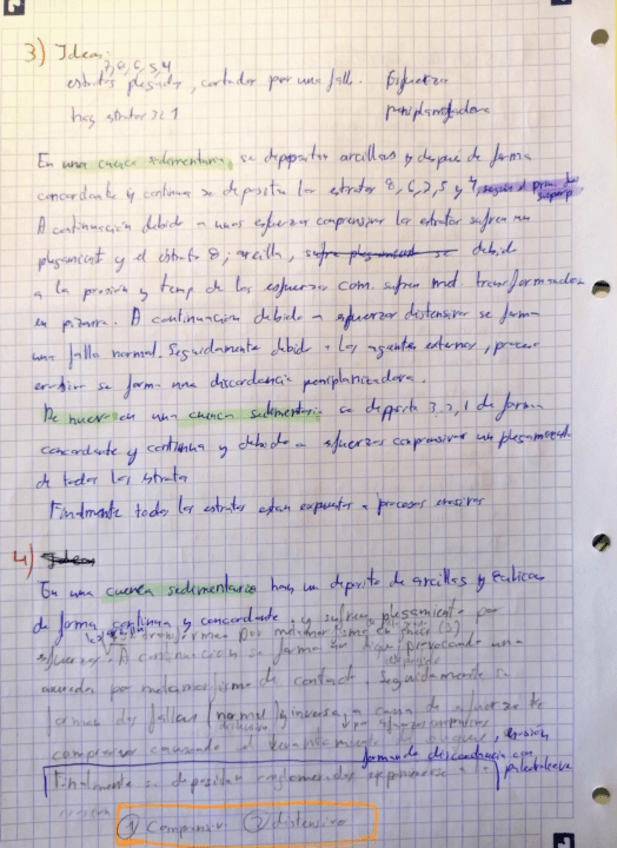 3) Ideas:
7, 8, 6, 5, 4
estratos plegados, cortados por una falla. Esfuerzo
hay estratos 3 2 1 peniplanizadora
En una cuenca sedimentaria, se depositan arcillas y después de forma
concordante y continua se depositan los estratos 8, 6, 7, 5 y 4, según el prin. superp
A continuación debido a unos esfuerzos compresivos los estratos sufren un
plegamiento y el estrato 8, arcilla, sufre plegamiento se debido
a la presión y temp de los esfuerzos com. sufren md. transformandose
en pizarra. A continuación debido a esfuerzos distensivos se forma
una falla normal. Seguidamente debido a los agentes externos, proceso
erosivo se forma una discordancia peniplanizadora.
De nuevo en una cuenca sedimentaria se deposita 3, 2, 1 de forma
concordante y continua y debido a esfuerzos compresivos un plegamiento
de todos los estratos
Finalmente todos los estratos estan expuestos a procesos erosivos
4) Ideas
En una cuenca sedimentaria hay un deposito de arcillas y calizas
de forma continua y concordante, y sufren plegamiento por
esfuerzos. A continuación se forma un dique, provocando una
aureola por metamorfismo de contacto. Seguidamente se
forman dos fallas (normal) y inversa, a causa de esfuerzo de
compresivo causando el levantamiento, erosion
formando discordancia con paleorelieve
Finalmente se depositan conglomerados
① Compresivo ② distensivo